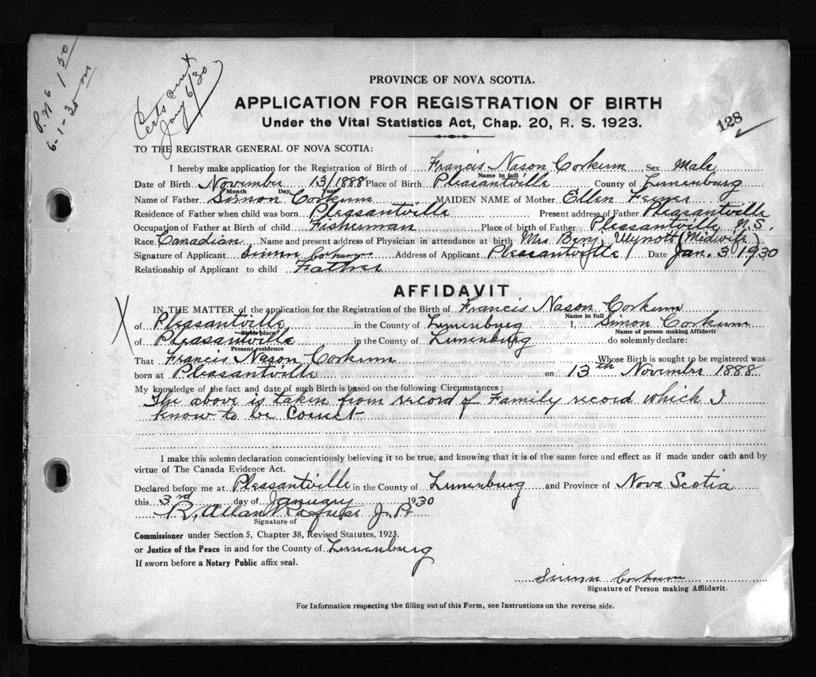 P. N⁰ 1 50
6-1-30 m
Certs out
Jany 6/30
128
PROVINCE OF NOVA SCOTIA.
APPLICATION FOR REGISTRATION OF BIRTH
Under the Vital Statistics Act, Chap. 20, R. S. 1923.
TO THE REGISTRAR GENERAL OF NOVA SCOTIA:
I hereby make application for the Registration of Birth of Francis Nason Corkum Sex Male
Name in full
Date of Birth November 13/1888 Place of Birth Pleasantville County of Lunenburg
Month Day Year
Name of Father Simon Corkum MAIDEN NAME of Mother Ellen
Residence of Father when child was born Pleasantville Present address of Father Pleasantville
Occupation of Father at Birth of child Fisherman Place of birth of Father Pleasantville N.S.
Race Canadian Name and present address of Physician in attendance at birth Mrs Benj. Wynott (Midwife)
Signature of Applicant Simon Corkum Address of Applicant Pleasantville Date Jan. 3 1930
Relationship of Applicant to child Father
AFFIDAVIT
X
IN THE MATTER of the application for the Registration of the Birth of Francis Nason Corkum
Name in full
of Pleasantville in the County of Lunenburg I, Simon Corkum
Birth place Name of person making Affidavit
of Pleasantville in the County of Lunenburg do solemnly declare:
Present residence
That Francis Nason Corkum Whose Birth is sought to be registered was
born at Pleasantville on 13th November 1888
My knowledge of the fact and date of such Birth is based on the following Circumstances:
The above is taken from record of Family record which I
know to be Correct
I make this solemn declaration conscientiously believing it to be true, and knowing that it is of the same force and effect as if made under oath and by
virtue of The Canada Evidence Act.
Declared before me at Pleasantville in the County of Lunenburg and Province of Nova Scotia
this 3rd day of January 1930
R. Allan J. P.
Signature of
Commissioner under Section 5, Chapter 38, Revised Statutes, 1923.
or Justice of the Peace in and for the County of Lunenburg
If sworn before a Notary Public affix seal.
Simon Corkum
Signature of Person making Affidavit.
For Information respecting the filling out of this Form, see Instructions on the reverse side.